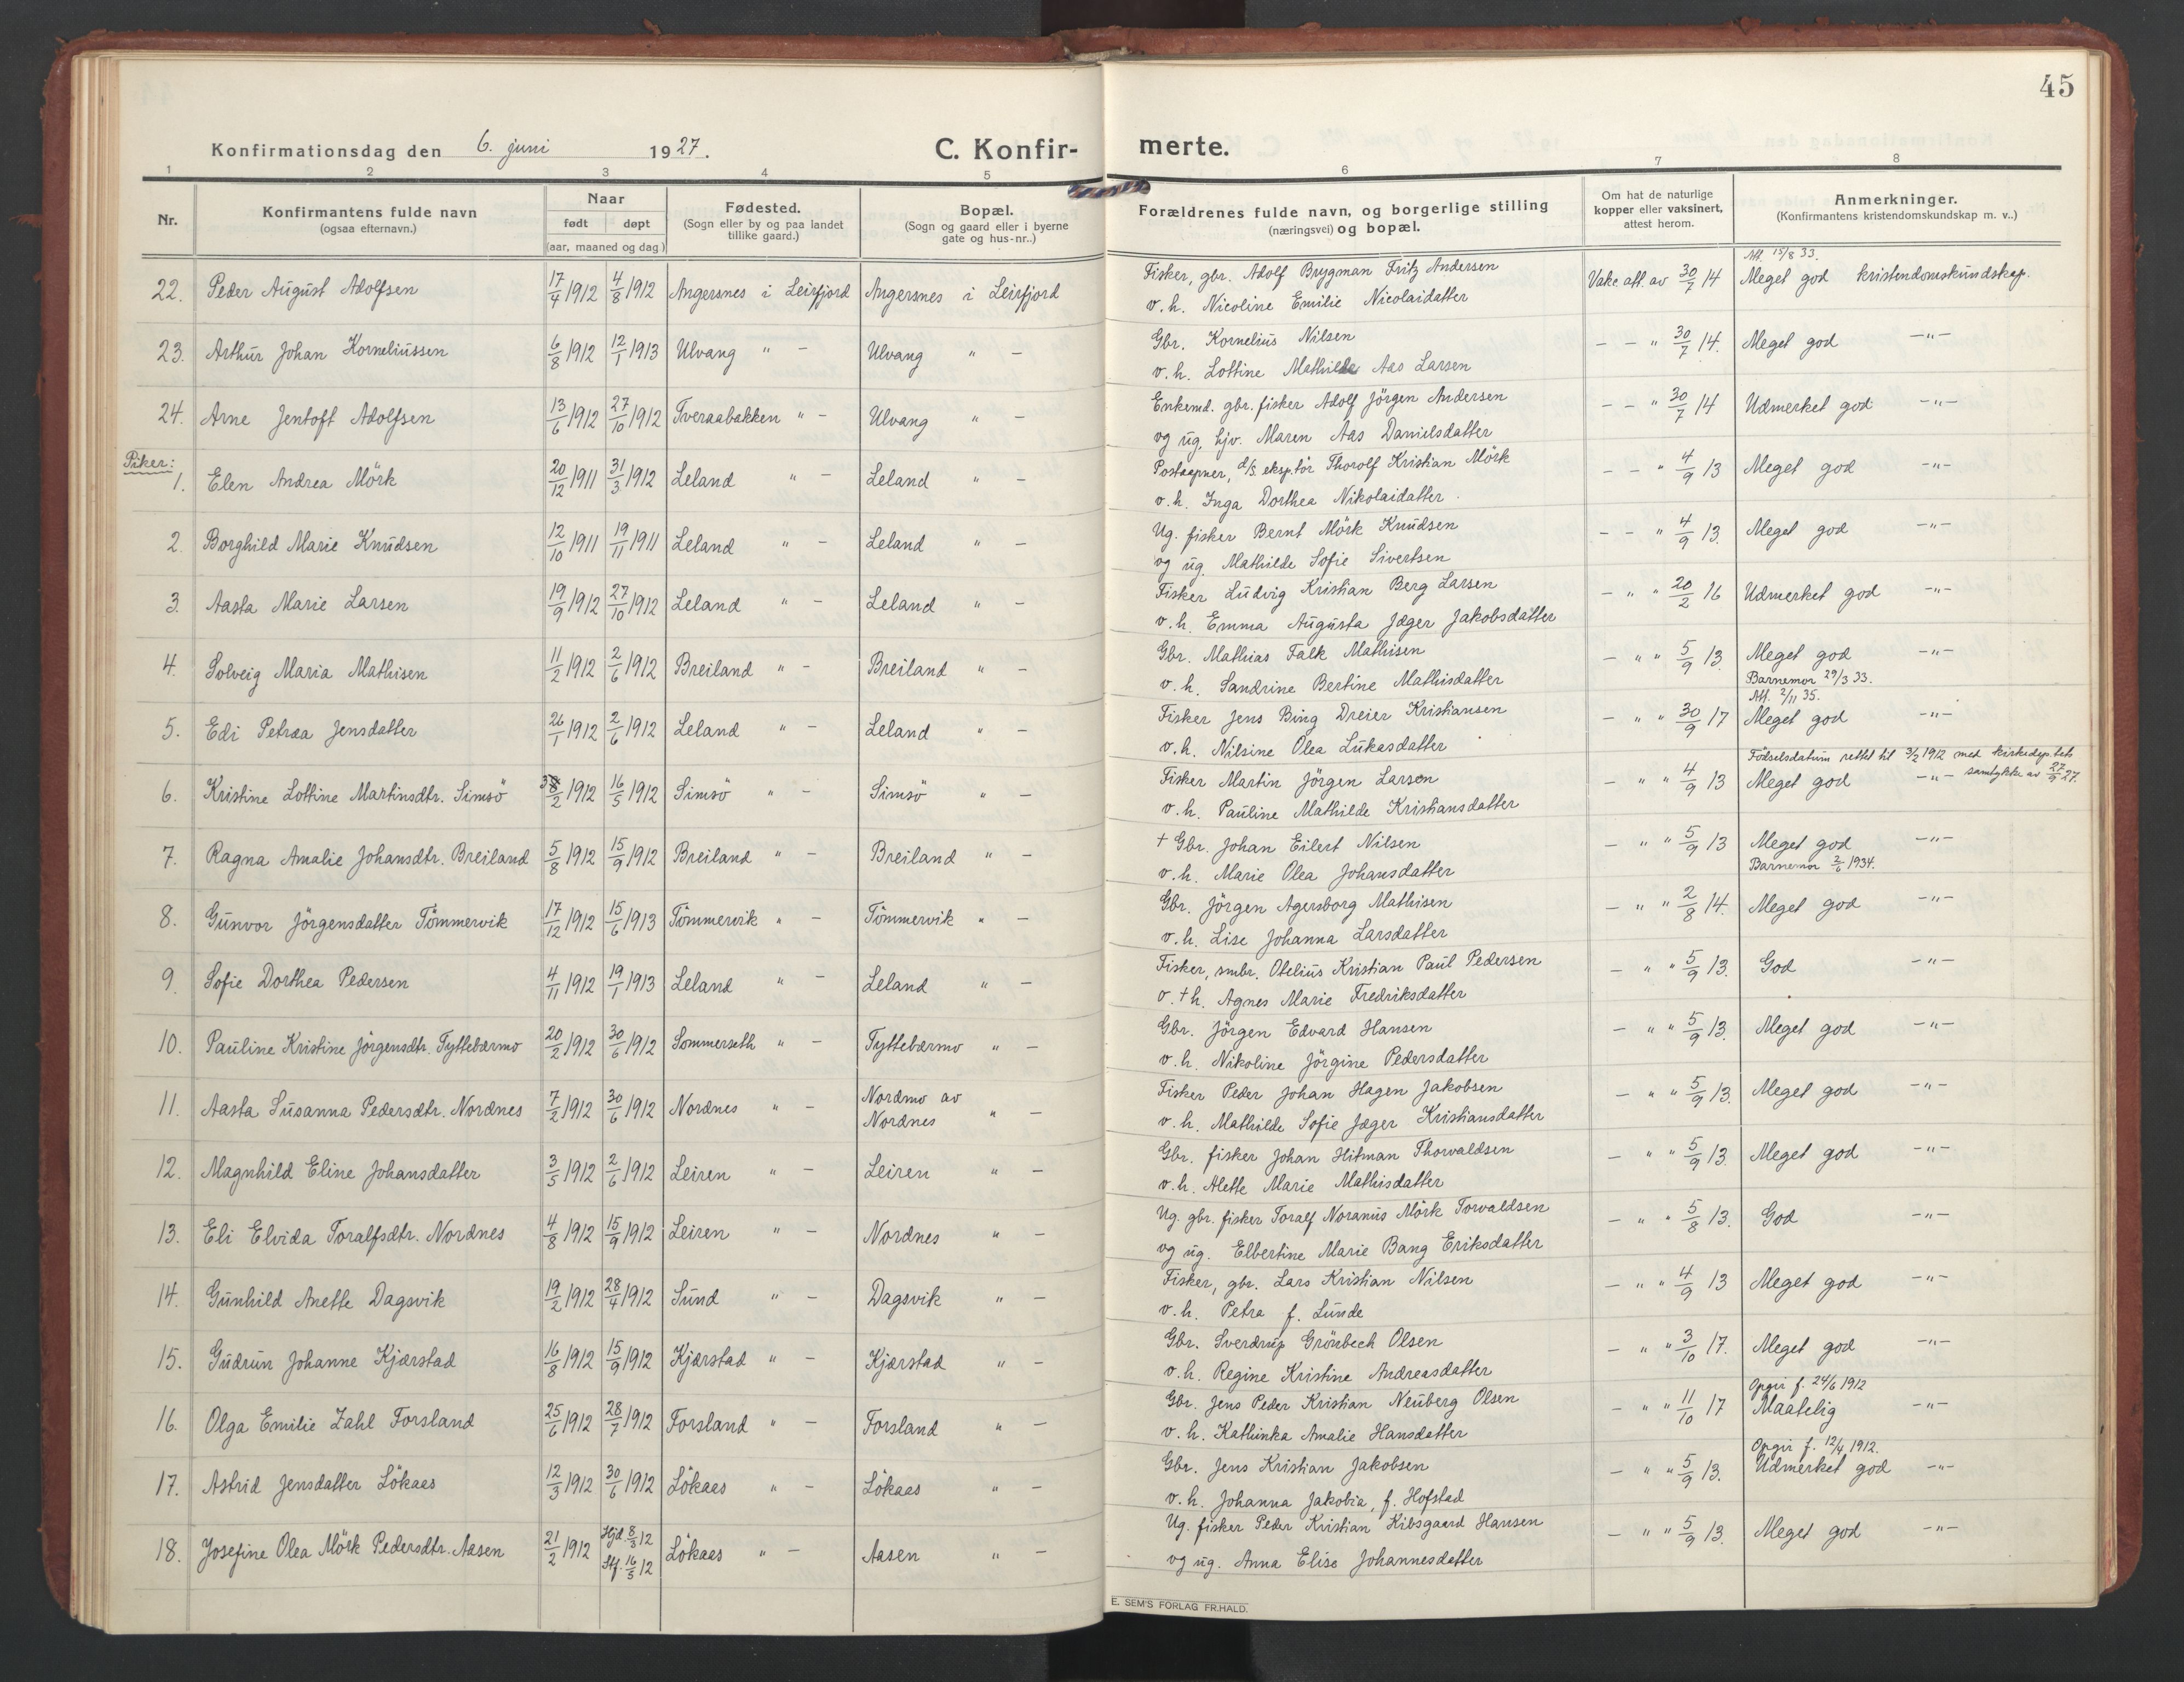 45
Konfirmationsdag den 6. juni 1927.
C. Konfir-
merte.
1 2 3 4 5 6 7 8
Nr.
Konfirmantens fulde navn
(ogsaa efternavn.)
Naar
født døpt
(aar, maaned og dag.)
Fødested.
(Sogn eller by og paa landet
tillike gaard.)
Bopæl.
(Sogn og gaard eller i byerne
gate og hus-nr..)
Forældrenes fulde navn, og borgerlige stilling
(næringsvei) og bopæl.
Om hat de naturlige
kopper eller vaksinert,
attest herom.
Anmerkninger.
(Konfirmantens kristendomskundskap m. v..)
Att. 15/8 33.
22. Peder August Adolfsen 17/4 1912 4/8 1912 Angersnes i Leirfjord Angersnes i Leirfjord Fisker, gbr. Adolf Brygman Fritz Andersen Vakc. att. av 30/7 14 Meget god kristendomskundskap.
o. h. Nicoline Emilie Nicolaidatter
23. Arthur Johan Korneliussen 6/8 1912 12/1 1913 Ulvang " – Ulvang " – Gbr. Kornelius Nilsen – – " 30/7 14. Meget god –"–
o. h. Lottine Mathilde Aas Larsen
24. Arne Jentoft Adolfsen 13/6 1912 27/10 1912 Tveraabakken " – Ulvang " – Enkemd. gbr. fisker Adolf Jörgen Andersen – – " 30/7 14 Udmerket god –"–
og ug. hjv. Maren Aas Danielsdatter
Piker:
1. Elen Andrea Mörk 20/12 1911 31/3 1912 Leland " – Leland " – Postaapner, d/s. eksp.tör Thorolf Kristian Mörk – – " 4/9 13 Meget god –"–
o. h. Inga Dorthea Nikolaidatter
2. Borghild Marie Knudsen 12/10 1911 19/11 1911 Leland " – Leland " – Ug. fisker Bernt Mörk Knudsen – – " 4/9 13. Meget god –"–
og ug. Mathilde Sofie Sivertsen
3. Aasta Marie Larsen 19/9 1912 27/10 1912 Leland " – Leland " – Fisker Ludvig Kristian Berg Larsen – " " 20/2 16 Udmerket god –"–
o. h. Emma Augusta Jæger Jakobsdatter
4. Solveig Maria Mathisen 11/2 1912 2/6 1912 Breiland " – Breiland " – Gbr. Mathias Falk Mathisen – " " 5/9 13. Meget god –"–
o. h. Sandrine Bertine Mathisdatter Barnemor 29/3 33.
Att. 2/11 35.
5. Edi Petræa Jensdatter 26/1 1912 2/6 1912 Leland " – Leland " – Fisker Jens Bing Dreier Kristiansen – " " 30/9 17 Meget god –"–
o. h. Nilsine Olea Lukasdatter
Födselsdatum rettet til 3/2 1912 med kirkedep.tets
samtykke av 27/9 27.
6. Kristine Lottine Martinsdtr. Simsö 3/2 1912 16/5 1912 Simsö " – Simsö " – Fisker Martin Jörgen Larsen – " " 4/9 13 Meget god –"–
o. h. Pauline Mathilde Kristiansdatter
7. Ragna Amalie Johansdtr. Breiland 5/8 1912 15/9 1912 Breiland " – Breiland " – + Gbr. Johan Eilert Nilsen – " " 5/9 13 Meget god –"–
o. h. Marie Olea Johansdatter Barnemor 2/6 1934.
8. Gunvor Jörgensdatter Tömmervik 17/12 1912 15/6 1913 Tömmervik " – Tömmervik " – Gbr. Jörgen Agersborg Mathisen – " " 2/8 14. Meget god –"–
o. h. Lise Johanna Larsdatter
9. Sofie Dorthea Pedersen 4/11 1912 19/1 1913 Leland " – Leland " – Fisker, smbr. Otelius Kristian Paul Pedersen – " " 5/9 13. God –"–
o. + h. Agnes Marie Fredriksdatter
10. Pauline Kristine Jörgensdtr. Tyttebærmo 20/2 1912 30/6 1912 Sommerseth " – Tyttebærmo " – Gbr. Jörgen Edvard Hansen – " " 5/9 13. Meget god –"–
o. h. Nikoline Jörgine Pedersdatter
11. Aasta Susanna Pedersdtr. Nordnes 7/2 1912 30/6 1912 Nordnes " – Nordmo av Nordnes " – Fisker Peder Johan Hagen Jakobsen – " " 5/9 13. Meget god –"–
o. h. Mathilde Sofie Jæger Kristiansdatter
12. Magnhild Eline Johansdatter 3/5 1912 2/6 1912 Leiren " – Leiren " – Gbr. fisker Johan Hitman Thorvaldsen – " " 5/9 13. Meget god –"–
o. h. Alette Marie Mathisdatter
13. Eli Elvida Toralfsdtr. Nordnes 4/8 1912 15/9 1912 Leiren " – Nordnes " – Ug. gbr. fisker Toralf Noranus Mörk Torvaldsen – " " 5/8 13. God –"–
og ug. Elbertine Marie Bang Eriksdatter
14. Gunhild Anette Dagsvik 19/2 1912 28/4 1912 Sund " – Dagsvik " – Fisker, gbr. Lars Kristian Nilsen – " " 4/9 13 Meget god –"–
o. h. Petra f. Lunde
15. Gudrun Johanne Kjærstad 16/8 1912 15/9 1912 Kjærstad " – Kjærstad " – Gbr. Sverdrup Grönbech Olsen – " " 3/10 17. Meget god –"–
o. h. Regine Kristine Andreasdatter
Opgir f. 24/6 1912
16. Olga Emilie Zahl Forsland 25/6 1912 28/7 1912 Forsland " – Forsland " – Gbr. Jens Peder Kristian Neuberg Olsen – " " 11/10 17 Maatelig –"–
o. h. Kathinka Amalie Hansdatter
Opgir f. 12/4 1912.
17. Astrid Jensdatter Lökaas 12/3 1912 30/6 1912 Lökaas " – Lökaas " – Gbr. Jens Kristian Jakobsen – " " 5/9 13. Udmerket god –"–
o. h. Johanna Jakobia, f. Hofstad
18. Josefine Olea Mörk Pedersdtr. Aasen 21/2 1912 Hjd. 8/3 12 Stf. 16/5 12 Lökaas " – Aasen " – Ug. fisker Peder Kristian Kibsgaard Hansen – " " 5/9 13. Meget god –"–
og ug. Anna Elise Johannesdatter
E. SEM'S FORLAG FR.HALD.